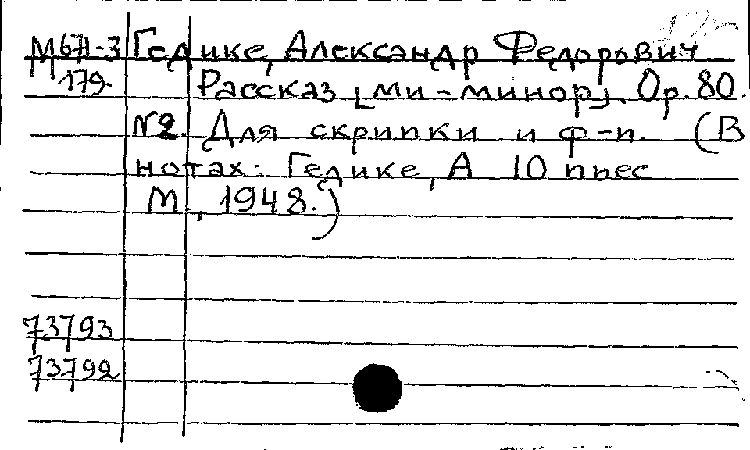 М671-3 Гедике, Александр Федорович
179. Рассказ [ми-минор]. Ор. 80.
№2. Для скрипки и ф-п. (В
нотах: Гедике, А 10 пьес
М, 1948.)
73793
73792